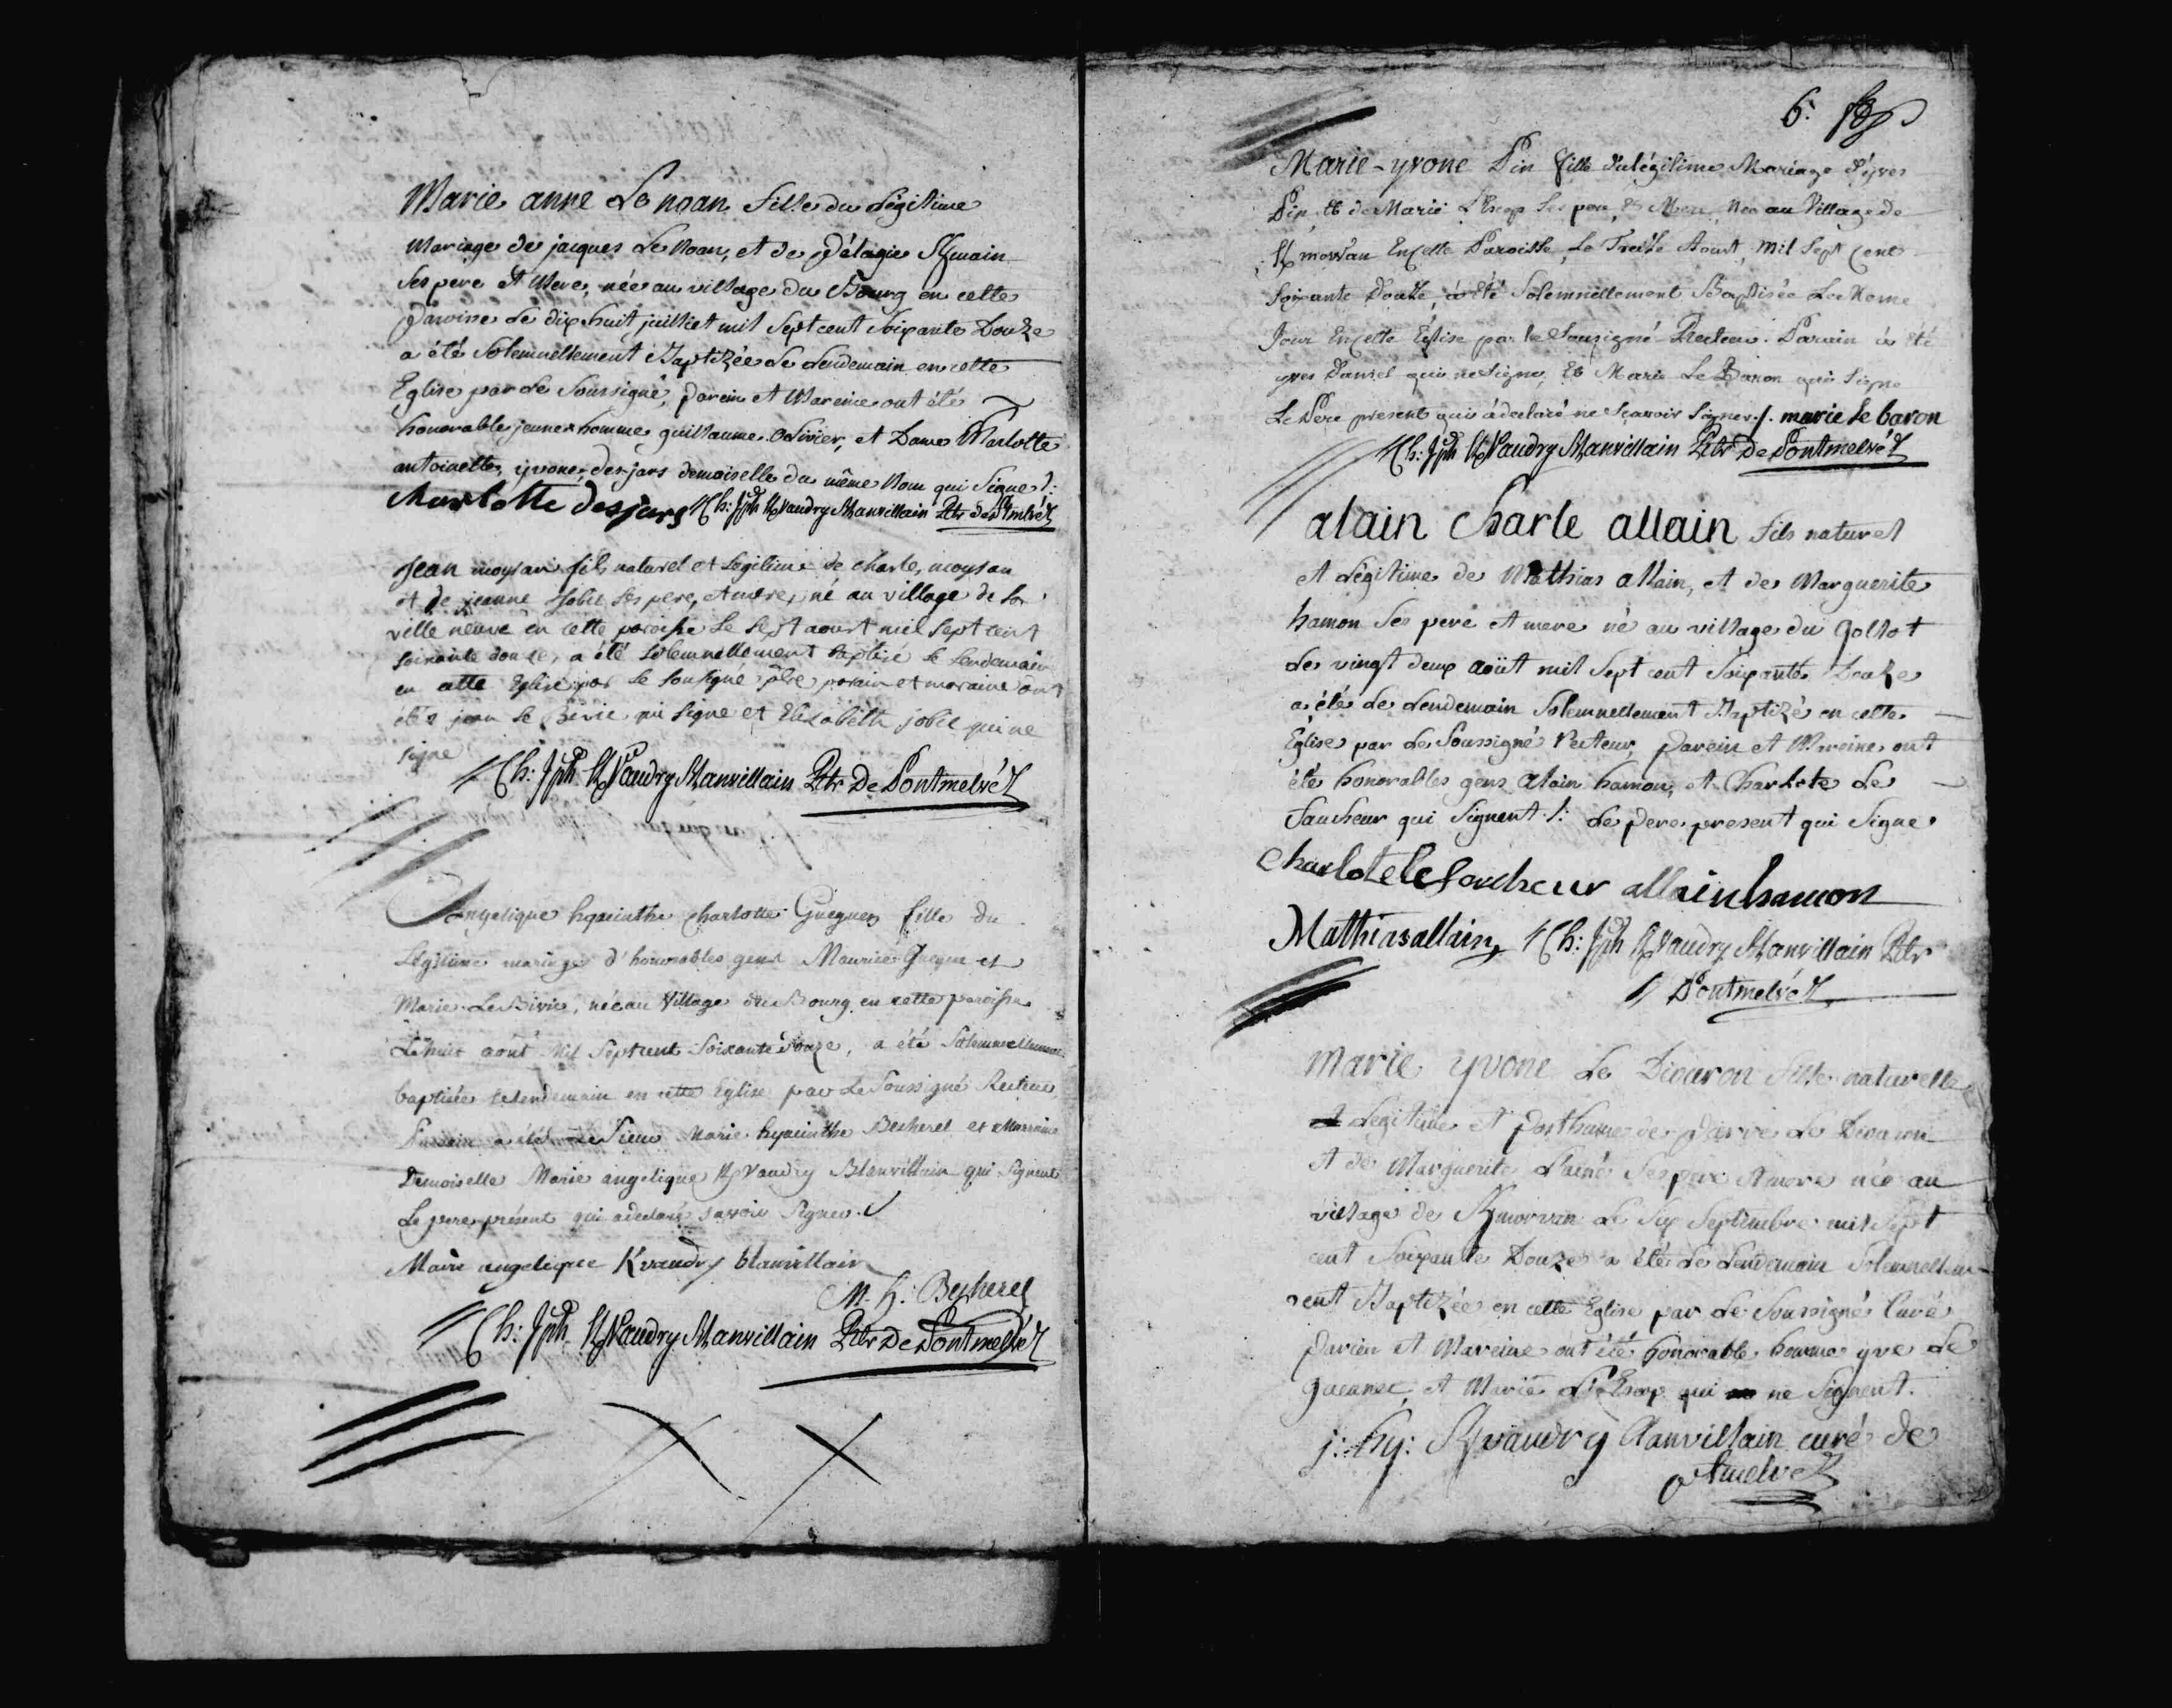 Marie anne Le noan fille du Légitime
Mariage de jacques Le Noan, et de Pélagie
Ses pere et Mere, née au village du Bourg en cette
Paroisse Le dix huit juillet mil Sept cent Soixante Douze
a été Solemnellement Baptizée Le Lendemain en cette
Eglise par Le Soussigné, parein et Mareine ont été
honorables jeune homme guillaume Olivier, et Dame Charlotte
antoinette, yvone, desjars demoiselle du même Nom qui Signe /:
Charlotte desjars Ch: Jph K/Vaudry Blanvillain Rtr de P/melvéz
Jean moysan fils naturel et legitime de charle, moysan
et de jeanne jobic ses pere, et mere, né au village de la
ville neuve en cette paroisse le sept aoust mil sept cent
soixante douze, a été solemnellement baptisé le lendemain
en cette Eglise par le sousigné pbre parain et maraine ont
étés jean le Bivic qui signe et Elizabeth jobic qui ne
signe
Ch: Jph K/Vaudry Blanvillain Rtr De Pontmelvéz
Angelique hyacinthe charlotte Gueguen fille du
Légitime mariage d'honorables gens Maurice Gueguen et
Marie Le Bivic, née au Village du Bourg en cette paroisse
Le huit août Mil Sept cent Soixante douze, a été Solemnellement
baptisée le lendemain en cette Eglise par Le Soussigné Recteur,
Parain a été le Sieur Marie hyacinthe Becherel et Marraine
Demoiselle Marie angelique K/Vaudry Blanvillain qui Signent
Le pere présent qui a declaré savoir Signer ./
Marie angelique K/vaudry blanvillain
M. h: Becherel
Ch: Jph K/Vaudry Blanvillain Rtr De Pontmelvéz
6:
Marie-yvone Pin fille du légitime Mariage d'yves
Pin et de Marie Ses pere & Mere, Née au Village de
K/morvan En cette Paroisse, Le Treize Aoust, Mil Sept Cent
Soixante Douze, a été Solemnellement Baptisée Le Meme
Jour En cette Église par le Sousigné Recteur. Parain a été
yves Daniel qui ne Signe, Et Marie Le Baron qui Signe
Le Pere present qui a declaré ne Sçavoir Signer ./. marie le baron
Ch: Jph K/Vaudry Blanvillain Rtr De Pontmelvéz
alain Charle allain fils naturel
et Légitime de Mathias allain, et de Marguerite
hamon Ses pere et mere né au village du Gollot
Le vingt deux août mil Sept cent Soixante Douze
a été Le Lendemain Solemnellement Baptizé en cette
Église par Le Soussigné Recteur, parein et Mareine ont
été honorables gens alain hamon, et Charlote Le
Faucheur qui Signent /: Le pere present qui Signe
charlote le faucheur allain hamon
Mathias allain, Ch: Jph K/Vaudry Blanvillain Rtr
D Pontmelvéz
Marie yvone Le Divaron fille naturelle
et Legitime et posthume de Pierre Le Divaron
et de Marguerite Ses pere et mere née au
village de K/morvan Le Six Septembre mil Sept
cent Soixante Douze a été Le Lendemain Solemnellem-
ent Baptizée en cette Eglise par Le Soussigné Curé
Parein et Mareine ont été honorable homme yve Le
et Marie qui ne Signent.
j: hy: K/vaudry Blanvillain curé de
P/melvéz